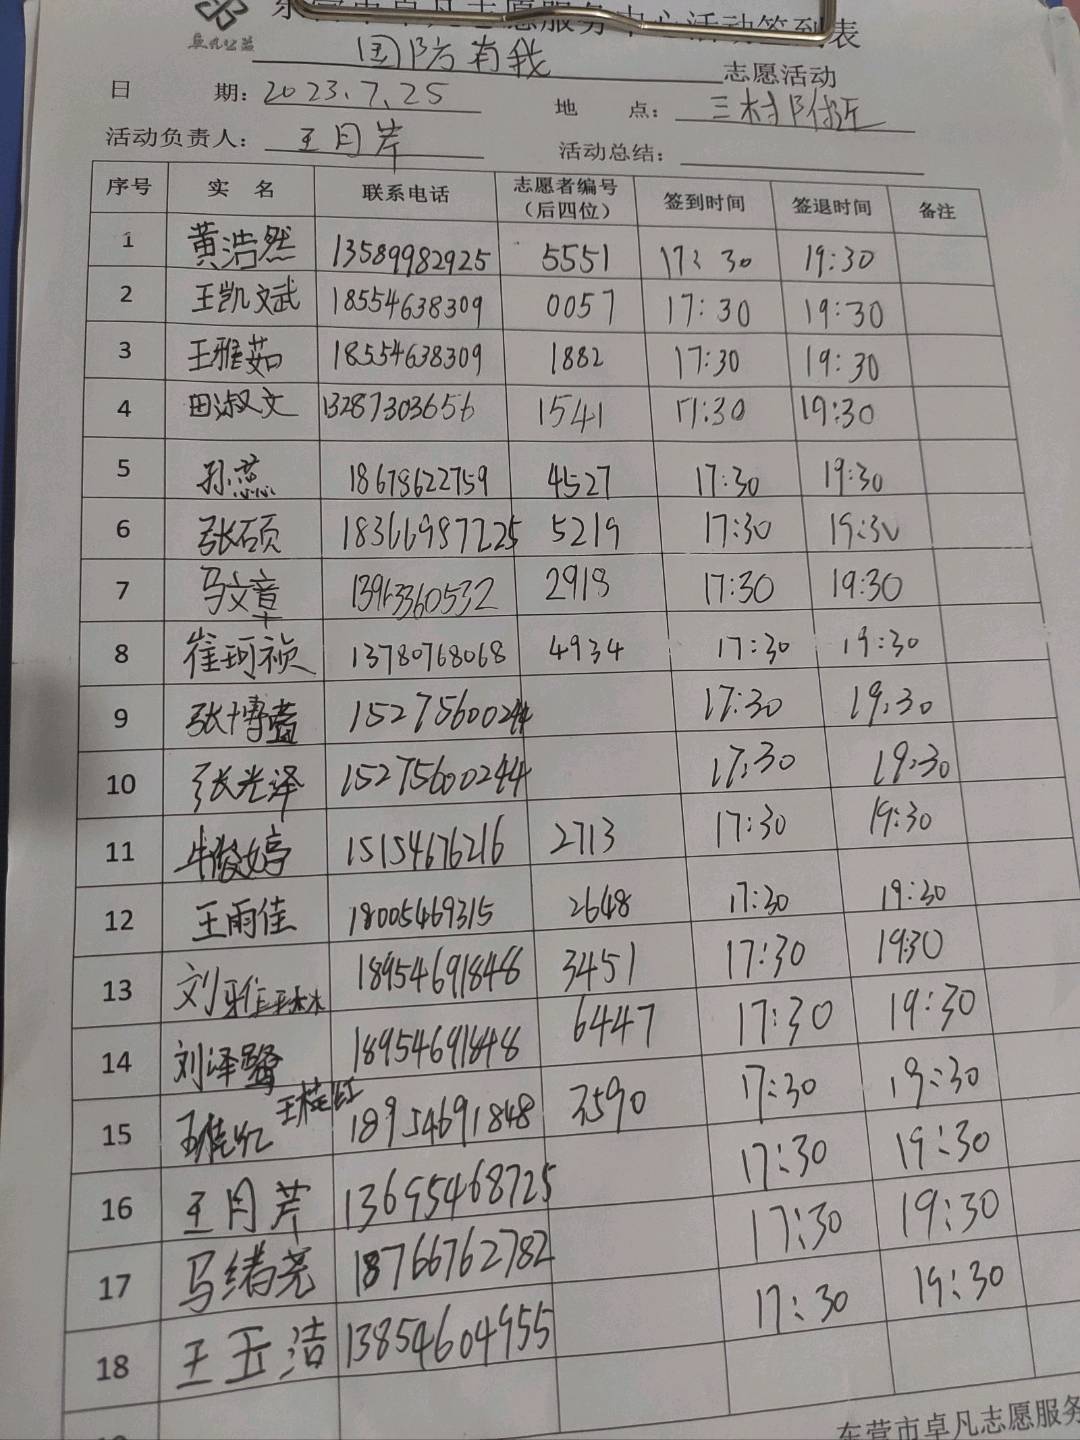 东营市卓凡志愿服务中心活动签到表
卓凡公益
国防有我 志愿活动
日 期: 2023.7.25 地 点: 三村附近
活动负责人: 王月芹 活动总结:
序号 实 名 联系电话 志愿者编号(后四位) 签到时间 签退时间 备注
1 黄浩然 13589982925 5551 17:30 19:30
2 王凯文武 18554638309 0057 17:30 19:30
3 王雅茹 18554638309 1882 17:30 19:30
4 田淑文 13287303656 1541 17:30 19:30
5 孙蕊 18678622759 4527 17:30 19:30
6 张硕 18366987225 5219 17:30 19:30
7 马文章 13963360532 2918 17:30 19:30
8 崔珂祯 13780768068 4934 17:30 19:30
9 张博 15275600244 17:30 19:30
10 张光泽 15275600244 17:30 19:30
11 牛骏婷 15154676216 2713 17:30 19:30
12 王雨佳 18005469315 2648 17:30 19:30
13 刘雅 18954691848 3451 17:30 19:30
14 刘泽鹭 18954691848 6447 17:30 19:30
15 王桂红 18954691848 3590 17:30 19:30
16 王月芹 13695468725 17:30 19:30
17 马绪尧 18766762782 17:30 19:30
18 王玉洁 13854604955 17:30 19:30
东营市卓凡志愿服务